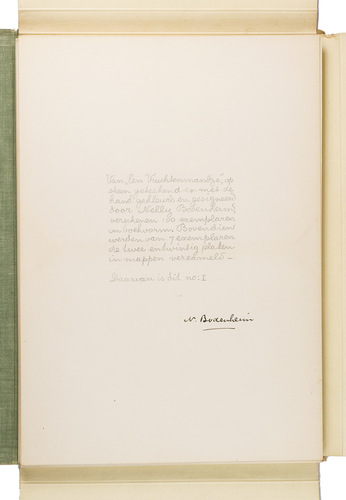 Van „Een Vruchtenmandje” op
steen geteekend en met de
hand gekleurd en gesigneerd
door Nelly Bodenheim,
verschenen 160 exemplaren
in boekvorm. Bovendien
werden van 7 exemplaren
de twee entwintig platen
in mappen verzameld —
Daarvan is dit no: I
N. Bodenheim